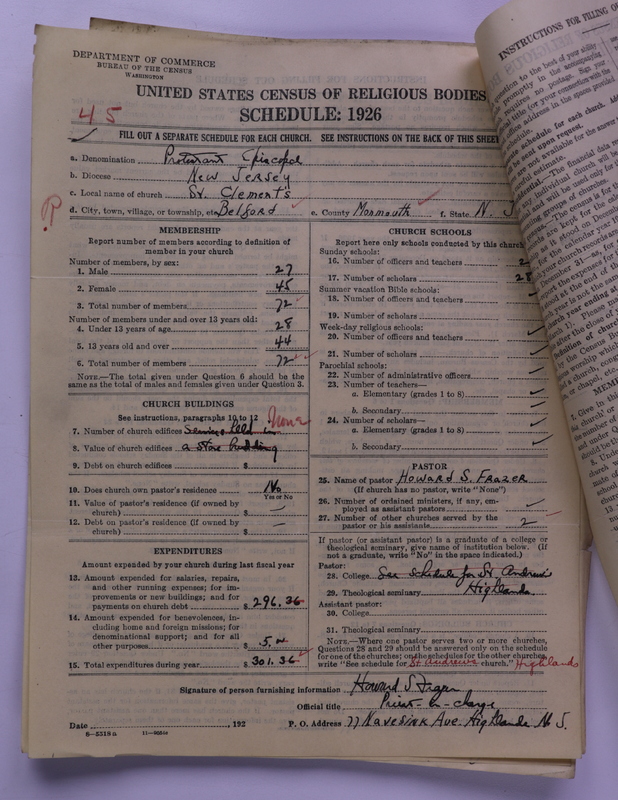 DEPARTMENT OF COMMERCE
BUREAU OF THE CENSUS
WASHINGTON
UNITED STATES CENSUS OF RELIGIOUS BODIES
SCHEDULE: 1926
45
FILL OUT A SEPARATE SCHEDULE FOR EACH CHURCH. SEE INSTRUCTIONS ON THE BACK OF THIS SHEET
a. Denomination Protestant Episcopal
b. Diocese New Jersey
c. Local name of church St. Clement's
d. City, town, village, or township, etc. Belford e. County Monmouth f. State N. J
MEMBERSHIP
Report number of members according to definition of
member in your church
Number of members, by sex:
1. Male 27
2. Female 45
3. Total number of members 72
Number of members under and over 13 years old:
4. Under 13 years of age 28
5. 13 years old and over 44
6. Total number of members 72
NOTE.—The total given under Question 6 should be the
same as the total of males and females given under Question 3.
CHURCH BUILDINGS
See instructions, paragraphs 10 to 12 None
7. Number of church edifices Services held in
8. Value of church edifices a store building
9. Debt on church edifices $
10. Does church own pastor's residence No
Yes or No
11. Value of pastor's residence (if owned by
church) $ —
12. Debt on pastor's residence (if owned by
church) $ —
EXPENDITURES
Amount expended by your church during last fiscal year
13. Amount expended for salaries, repairs,
and other running expenses; for im-
provements or new buildings; and for
payments on church debt $ 296.36
14. Amount expended for benevolences, in-
cluding home and foreign missions; for
denominational support; and for all
other purposes $ 5.00
15. Total expenditures during year $ 301.36
CHURCH SCHOOLS
Report here only schools conducted by this church
Sunday schools:
16. Number of officers and teachers 2
17. Number of scholars 28
Summer vacation Bible schools:
18. Number of officers and teachers
19. Number of scholars
Week-day religious schools:
20. Number of officers and teachers
21. Number of scholars
Parochial schools:
22. Number of administrative officers
23. Number of teachers—
a. Elementary (grades 1 to 8)
b. Secondary
24. Number of scholars—
a. Elementary (grades 1 to 8)
b. Secondary
PASTOR
25. Name of pastor Howard S. Frazer
(If church has no pastor, write "None")
26. Number of ordained ministers, if any, em-
ployed as assistant pastors
27. Number of other churches served by the
pastor or his assistants 2
If pastor (or assistant pastor) is a graduate of a college or
theological seminary, give name of institution below. (If
not a graduate, write "No" in the space indicated.)
Pastor:
28. College See schedule for St Andrew's
29. Theological seminary Highlands
Assistant pastor:
30. College
31. Theological seminary
NOTE.—Where one pastor serves two or more churches,
Questions 28 and 29 should be answered only on the schedule
for one of the churches; on the schedules for the other churches,
write "See schedule for St Andrews church." Highlands
Signature of person furnishing information Howard S Frazer
Official title Priest-in-charge
Date , 192 P. O. Address 77 Navesink Ave Highlands N. J.
8—5318a
INSTRUCTIONS FOR FILLING